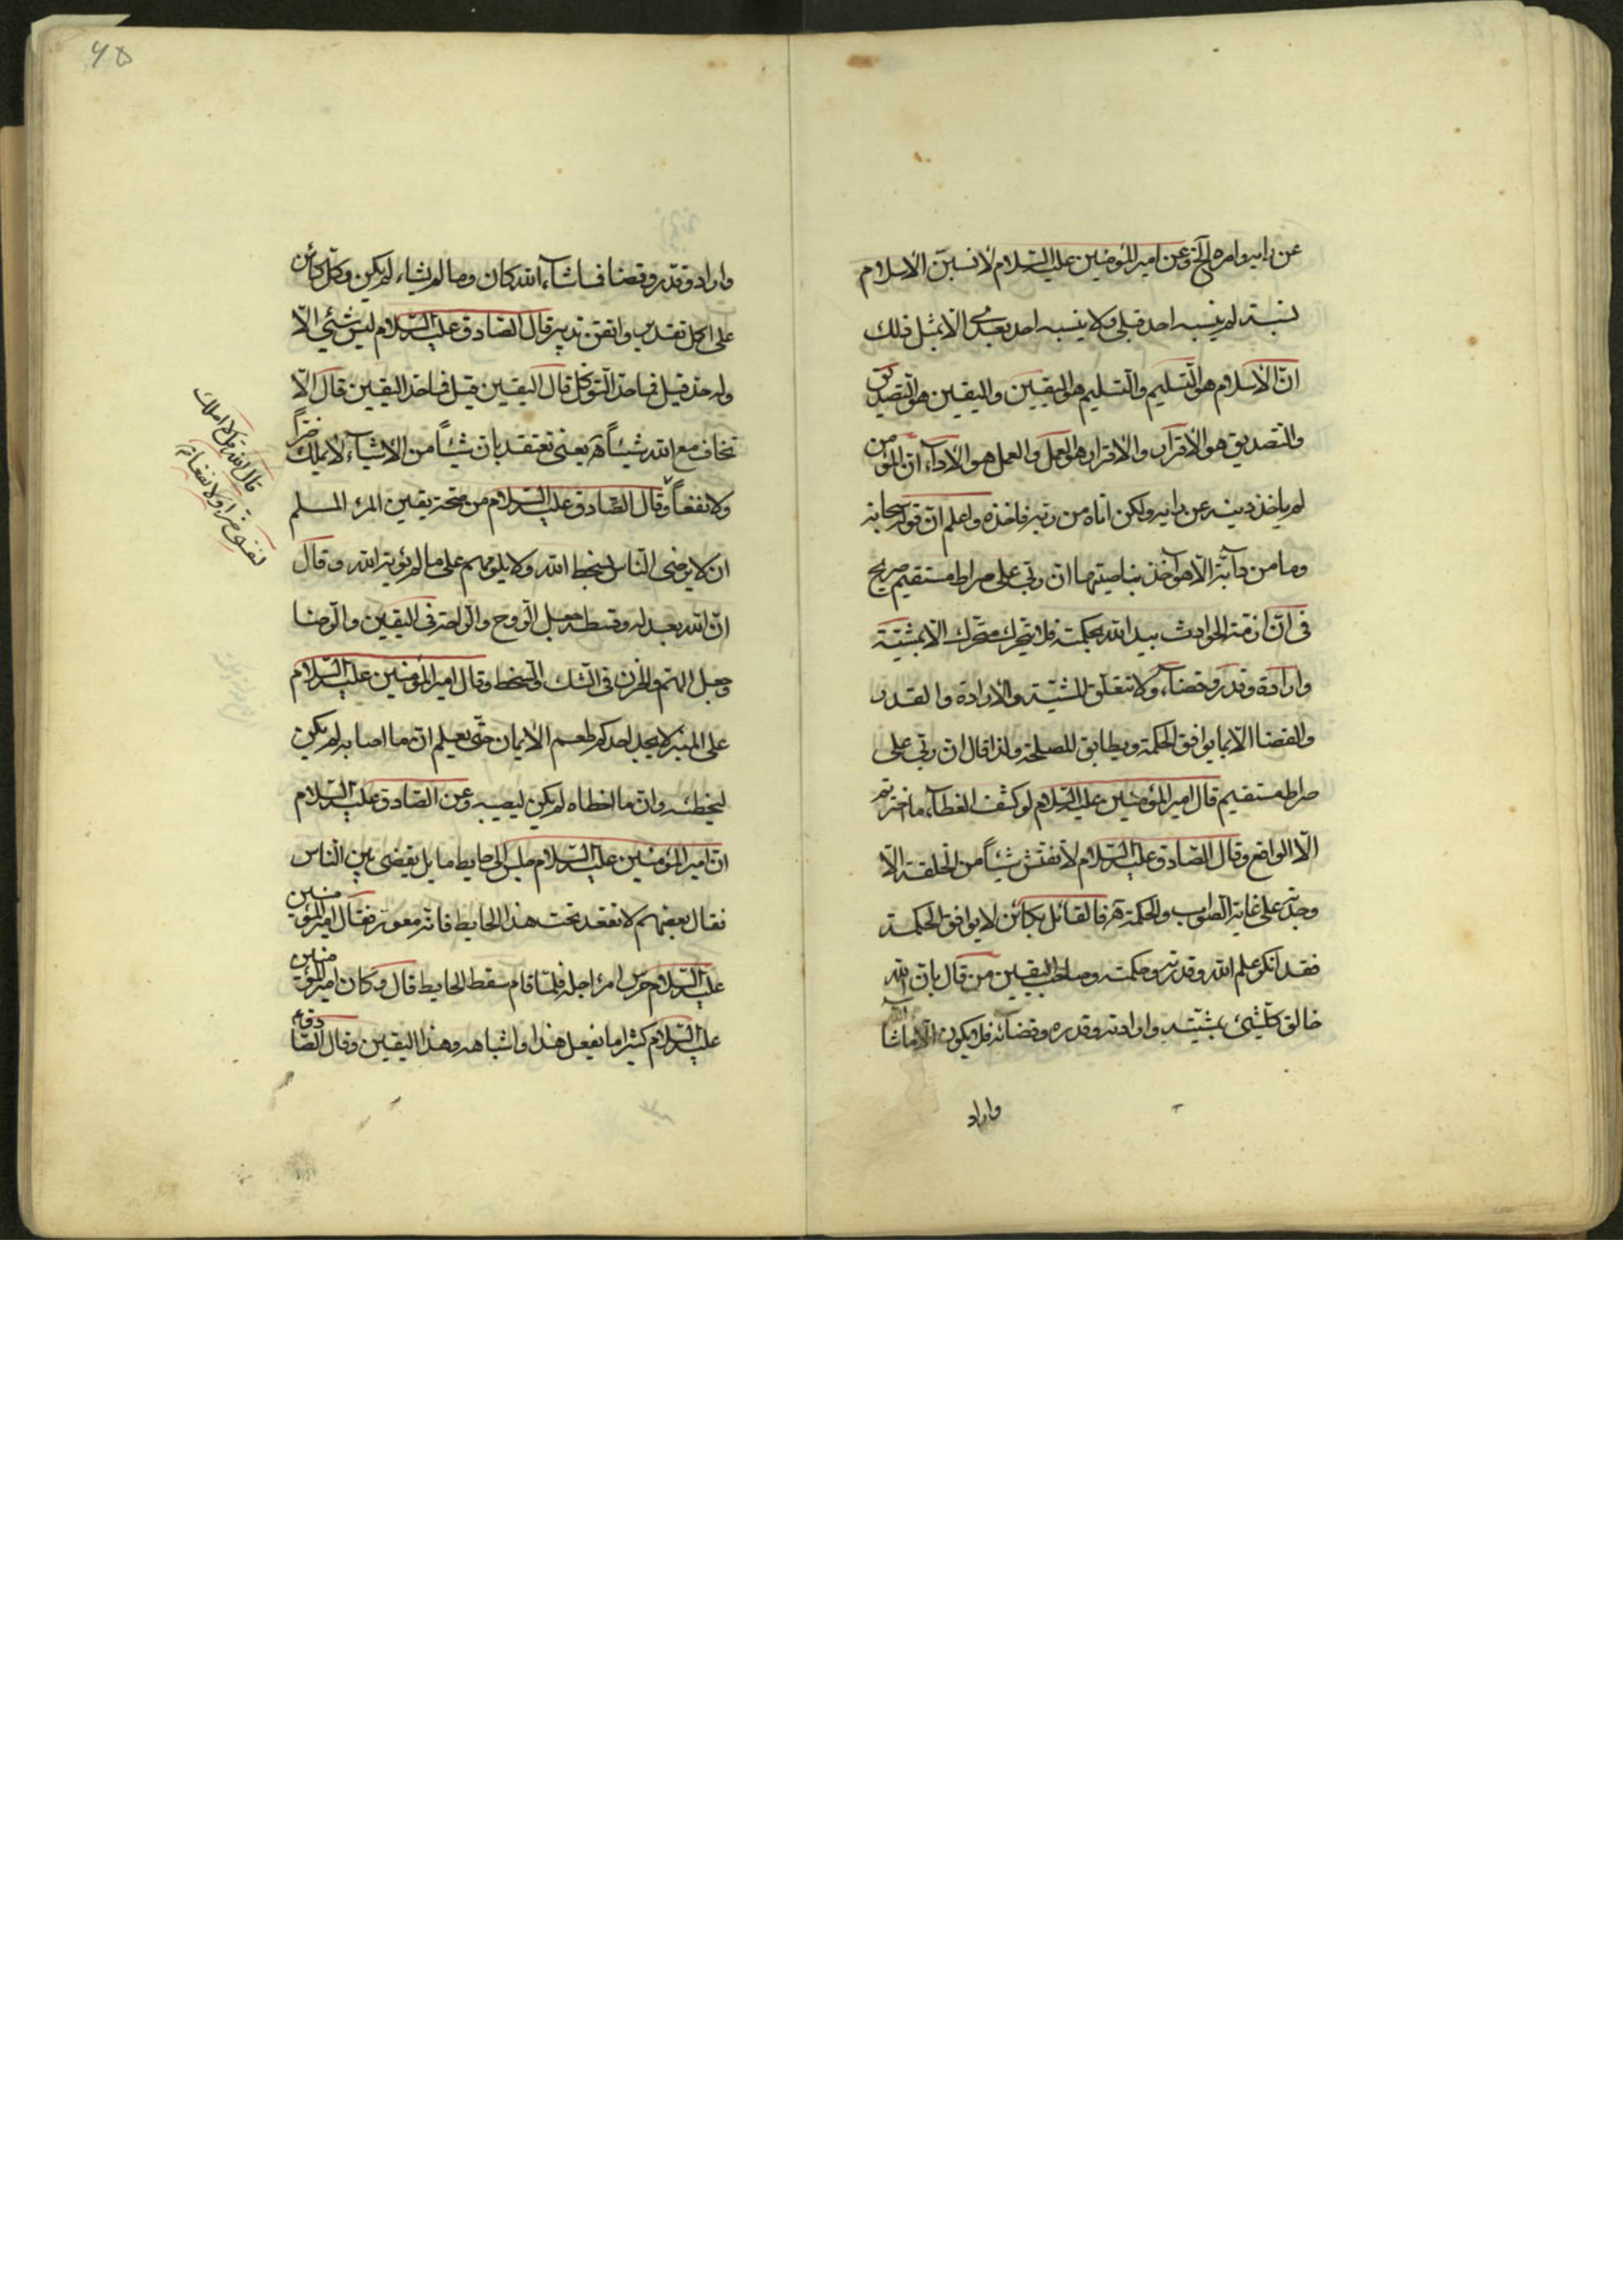 عن رايه وامره الخ وعن امير المؤمنين عليه السلام لانسبن الاسلام
نسبة لم ينسبه احد قبلي ولا ينسبه احد بعدي الا بمثل ذلك
ان الاسلام هو التسليم والتسليم هو اليقين واليقين هو التصديق
والتصديق هو الاقرار والاقرار هو العمل والعمل هو الاداء ان المؤمن
لم ياخذ دينه عن رايه ولكن اتاه من ربه فاخذه واعلم ان قوله سبحانه
وما من دآبة الا هو آخذ بناصيتها ان ربي على صراط مستقيم صريح
في ان ازمة الحوادث بيد الله بحكمته فلا يتحرك متحرك الا بمشيته
وارادة وقدر وقضاء ولا تتعلق المشية والارادة والقدر
والقضا الا بما يوافق الحكمة ويطابق المصلحة ولذا قال ان ربي على
صراط مستقيم قال امير المؤمنين عليه السلام لو كشف الغطاء ما اخترتم
الا الواقع وقال الصادق عليه السلام لا تفتش شيئاً من الخلقة الا
وجدته على غاية الصواب والحكمة فالقائل بكائن لا يوافق الحكمة
فقد انكر علم الله وقدرته وحكمته وصاحب اليقين من قال بان الله
خالق كلشئ بمشيته وارادته وقدره وقضائه فلا يكون الا ما شاء الله
واراد
واراد وقدر وقضا فما شاء الله كان وما لم يشاء لم يكن وكل كائن
على اكمل تقدير واتقن تدبير قال الصادق عليه السلام ليس شئ الا
وله حد قيل فما حد التوكل قال اليقين قيل فما حد اليقين قال الا
تخاف مع الله شيئاً يعني تعتقد بان شيئاً من الاشياء لا يملك ضراً
ولا نفعاً وقال الصادق عليه السلام من صحة يقين المرء المسلم
ان لا يرضى الناس بسخط الله ولا يلومهم على ما لم يؤته الله وقال
ان الله بعدله وقسطه جعل الروح والراحة في اليقين والرضا
وجعل الهم والحزن في الشك والسخط وقال امير المؤمنين عليه السلام
على المنبر لا يجد احدكم طعم الايمان حتى يعلم ان ما اصابه لم يكن
ليخطئه وان ما اخطاه لم يكن ليصيبه وعن الصادق عليه السلام
ان امير المؤمنين عليه السلام جلس الى حايط مايل يقضي بين الناس
فقال بعضهم لا تقعد تحت هذا الحايط فانه معور فقال امير المؤمنين
عليه السلام حرس امرء اجله فلما قام سقط الحايط قال وكان امير المؤمنين
عليه السلام كثيرا ما يفعل هذا واشباهه وهذا اليقين وقال الصادق ع
قال الله قل لا املك
لنفسي ضرا ولا نفعا